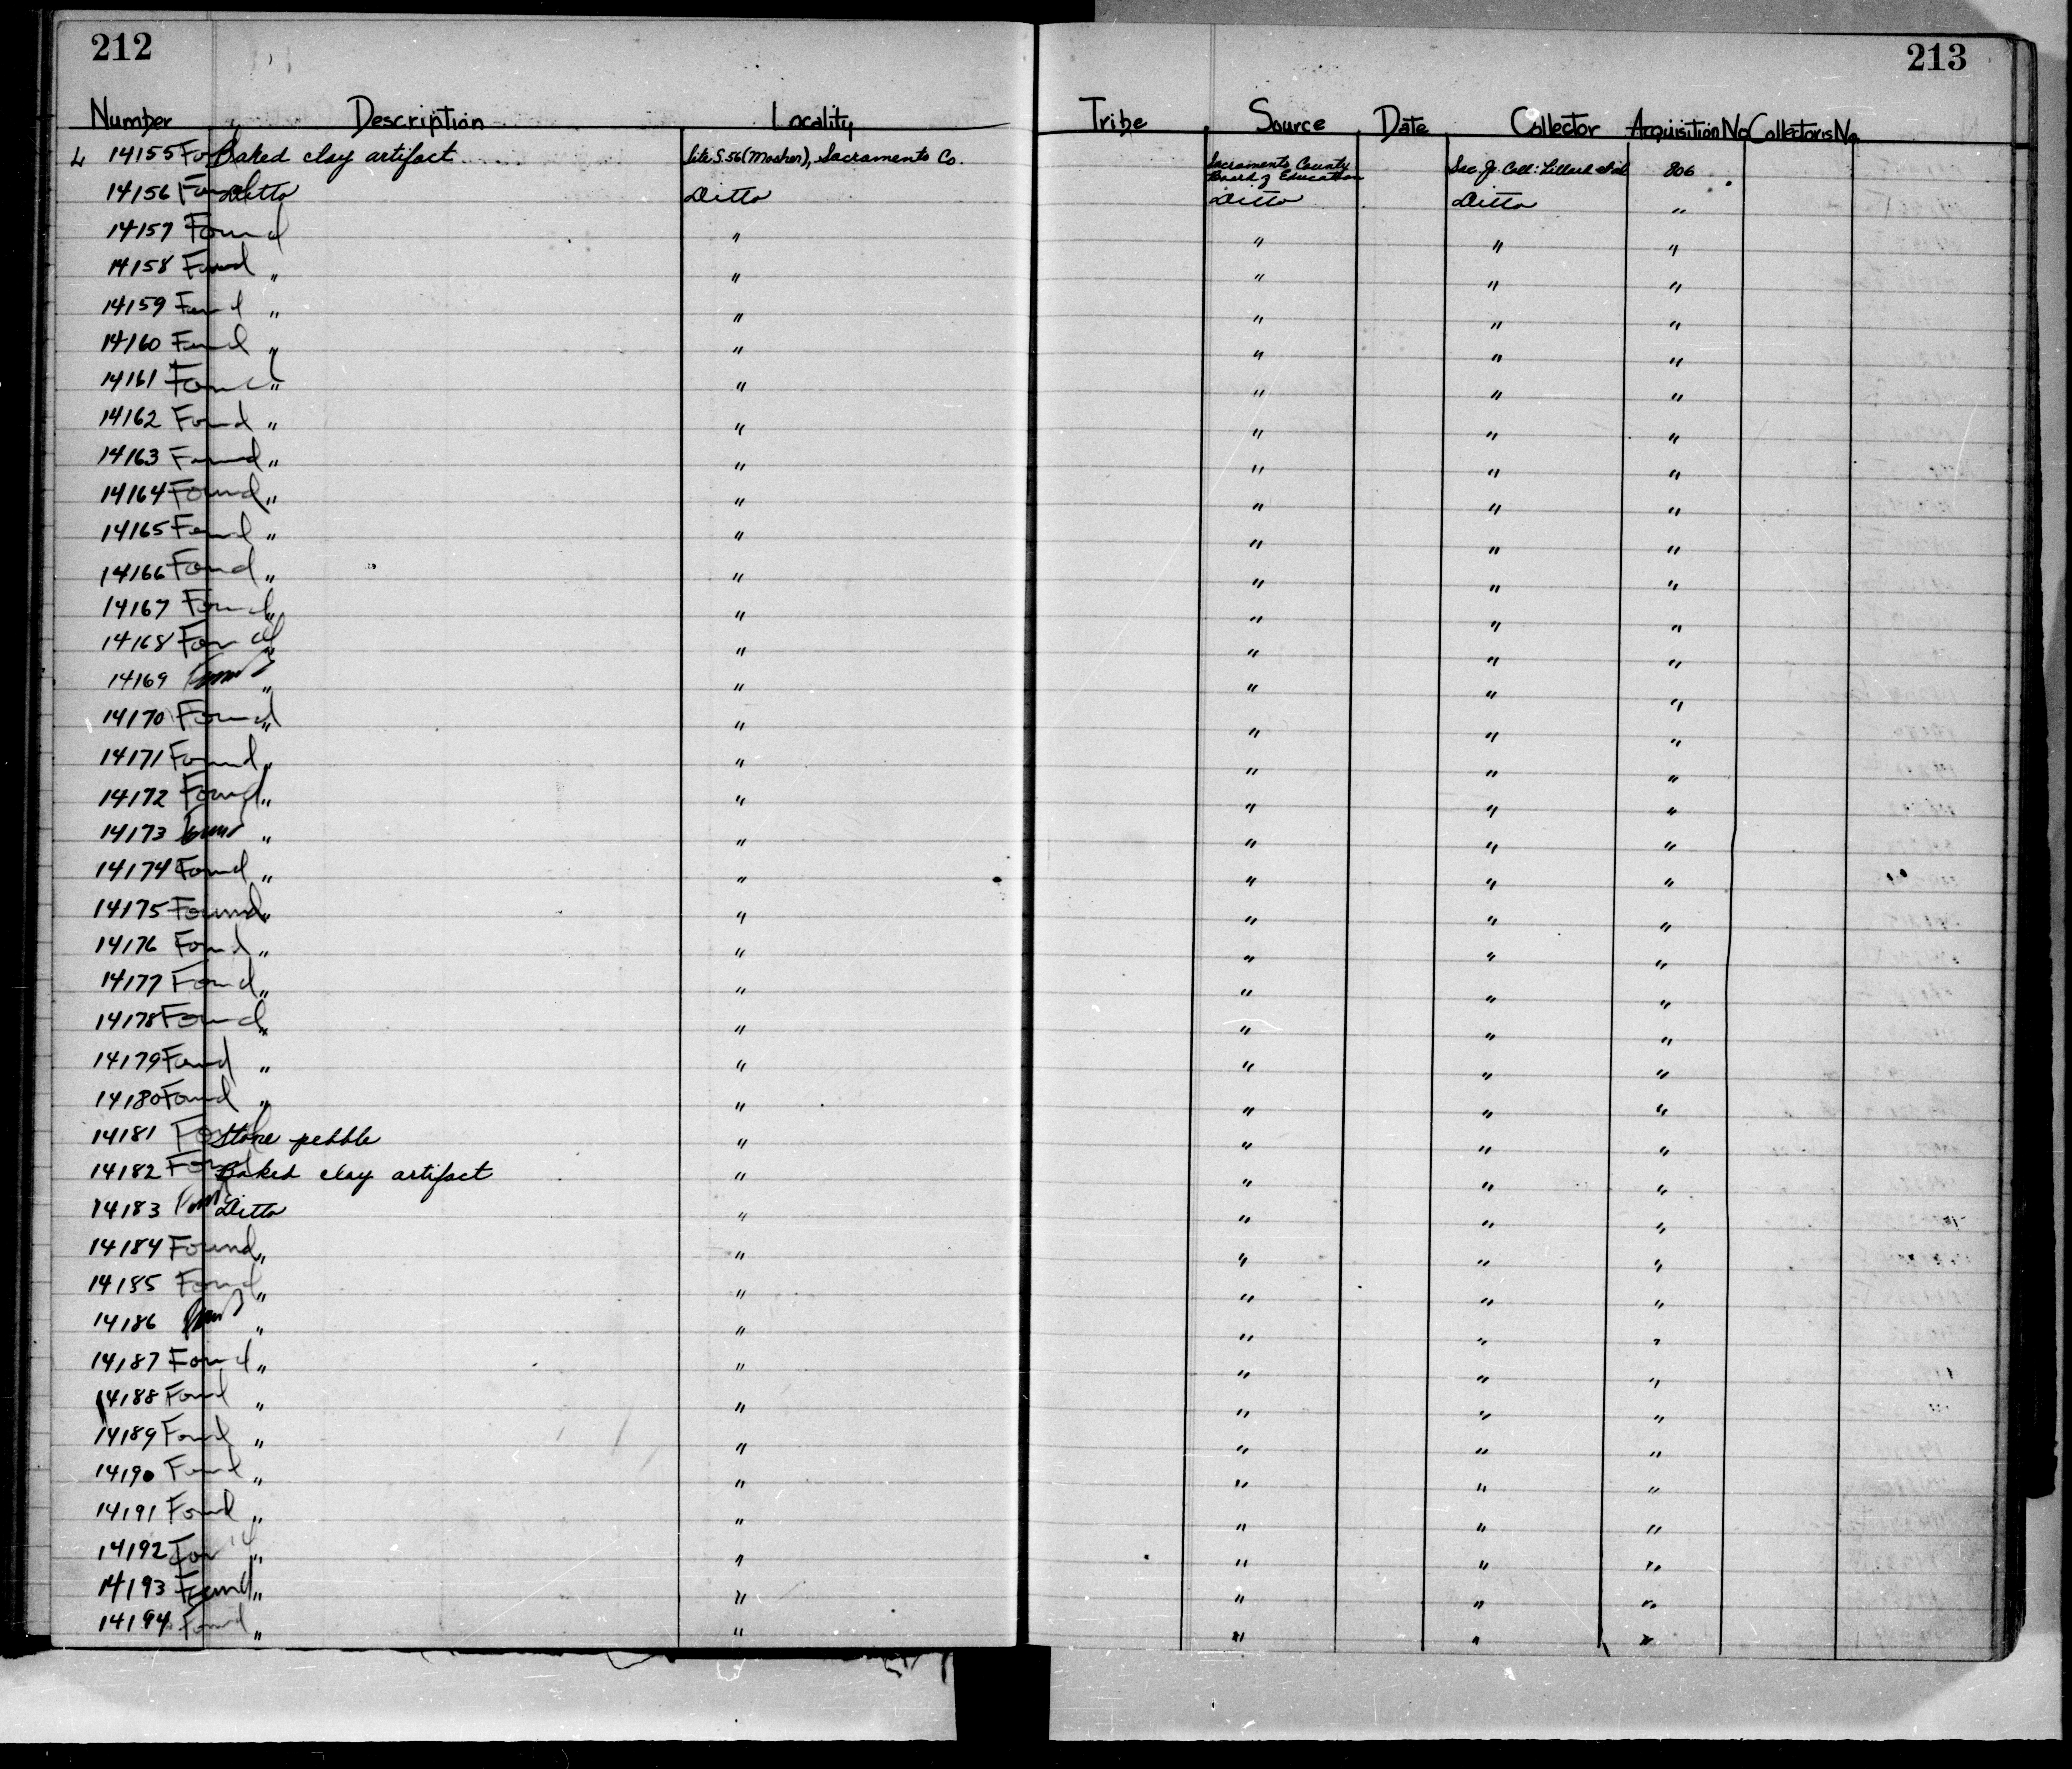 212
213
Number Description Locality Tribe Source Date Collector Acquisition No Collector's No.
L 14155 Found Baked clay artifact Site S.56 (Mosher), Sacramento Co. Sacramento County Board of Education Sac. Jr. Coll: Lillard 806
14156 Found Ditto Ditto Ditto Ditto "
14157 Found " " " "
14158 Found " " " " "
14159 Found " " " " "
14160 Found " " " " "
14161 Found " " " " "
14162 Found " " " " "
14163 Found " " " " "
14164 Found " " " " "
14165 Found " " " " "
14166 Found " " " " "
14167 Found " " " " "
14168 Found " " " " "
14169 Found " " " " "
14170 Found " " " " "
14171 Found " " " " "
14172 Found " " " " "
14173 Found " " " " "
14174 Found " " " " "
14175 Found " " " " "
14176 Found " " " " "
14177 Found " " " " "
14178 Found " " " " "
14179 Found " " " " "
14180 Found " " " " "
14181 Found Stone pebble " " " "
14182 Found Baked clay artifact " " " "
14183 Found Ditto " " " "
14184 Found " " " " "
14185 Found " " " " "
14186 Found " " " " "
14187 Found " " " " "
14188 Found " " " " "
14189 Found " " " " "
14190 Found " " " " "
14191 Found " " " " "
14192 Found " " " " "
14193 Found " " " " "
14194 Found " " " " "